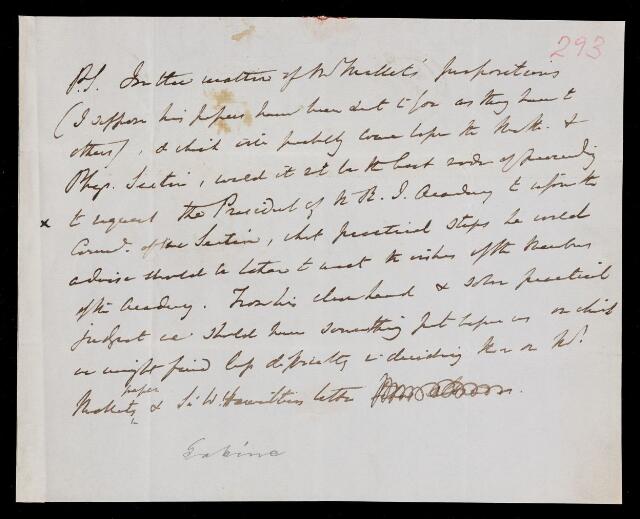 293
P.S. In the matter of Mr Mallet's propositions
(I suppose his papers have been sent to you as they have to
others), & which will probably come before the Math. &
Phys. Section, would it not be the best mode of proceeding
x to request the President of the R. I. Academy to inform the
Comm. of the Section, what practical steps he would
advise should be taken to meet the wishes of the Members
of the Academy. From his clear head & sober practical
judgmt we should have something put before us on which
we might find less difficulty in deciding than on Mr
Mallet's paper & Sir W. Hamilton's letter
Erskine